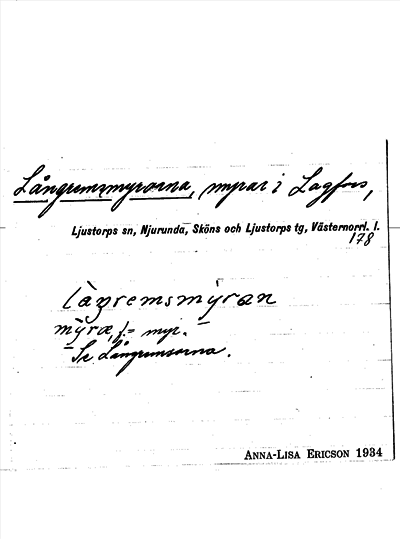 Långremsmyrorna, myrar i Lagfors,
Ljustorps sn, Njurunda, Sköns och Ljustorps tg, Västernorrl. l.
178
myræ, f. = myr.
Se Långremsorna.
ANNA-LISA ERICSON 1934